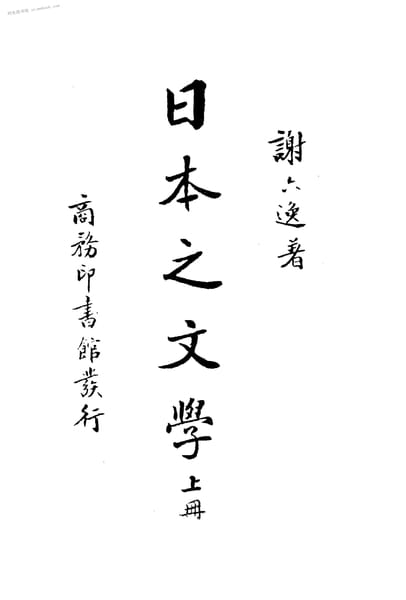 謝六逸著
日本之文學上冊
商務印書館發行